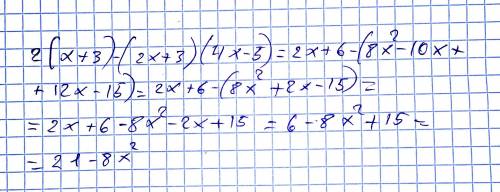 2(x+3)-(2x+3)(4x-5)=2x+6-(8x²-10x+
+12x-15)=2x+6-(8x²+2x-15)=
=2x+6-8x²-2x+15 =6-8x²+15=
=21-8x²